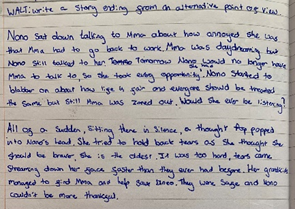 WALT: write a Story ending from an alternative point of view.
Nono sat down talking to Mma about how annoyed she was
that Mma had to go back to work. Mma was daydreaming but
Nono still talked to her. Tomorrow Nono would no longer have
Mma to talk to, so she took every opportunity. Nono started to
blabber on about how life is fair and everyone should be treated
the same but still Mma was zoned out. Would she ever be listening?
All of a Sudden, Sitting there in Silence, a thought popped
into Nono's head. She tried to hold back tears as she thought she
should be braver, she is the oldest. It was too hard, tears came
Streaming down her face faster than they ever had before. Her
managed to find Mma and help save Dineo. They were Safe and Nono
couldn't be more thankful.